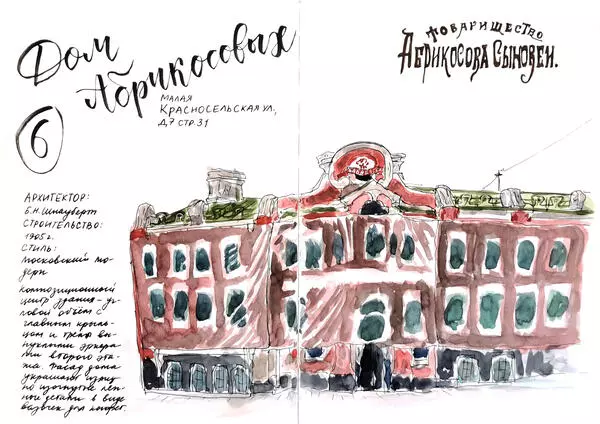 Дом
Абрикосовых
6
Малая
Красносельская ул.,
д.7 стр.31
Товарищество
Абрикосова Сыновей.
Архитектор:
Б.Н. Шнауберт
Строительство:
1905 г.
Стиль:
Московский мо-
дерн
Композиционный
центр здания - уг-
ловой объём с
главным крыль-
цом и тремя вы-
пуклыми эркера-
ми второго эта-
жа. Фасад дома
украшают изящ-
но изогнутые леп-
ные детали в виде
вазочек для конфет.